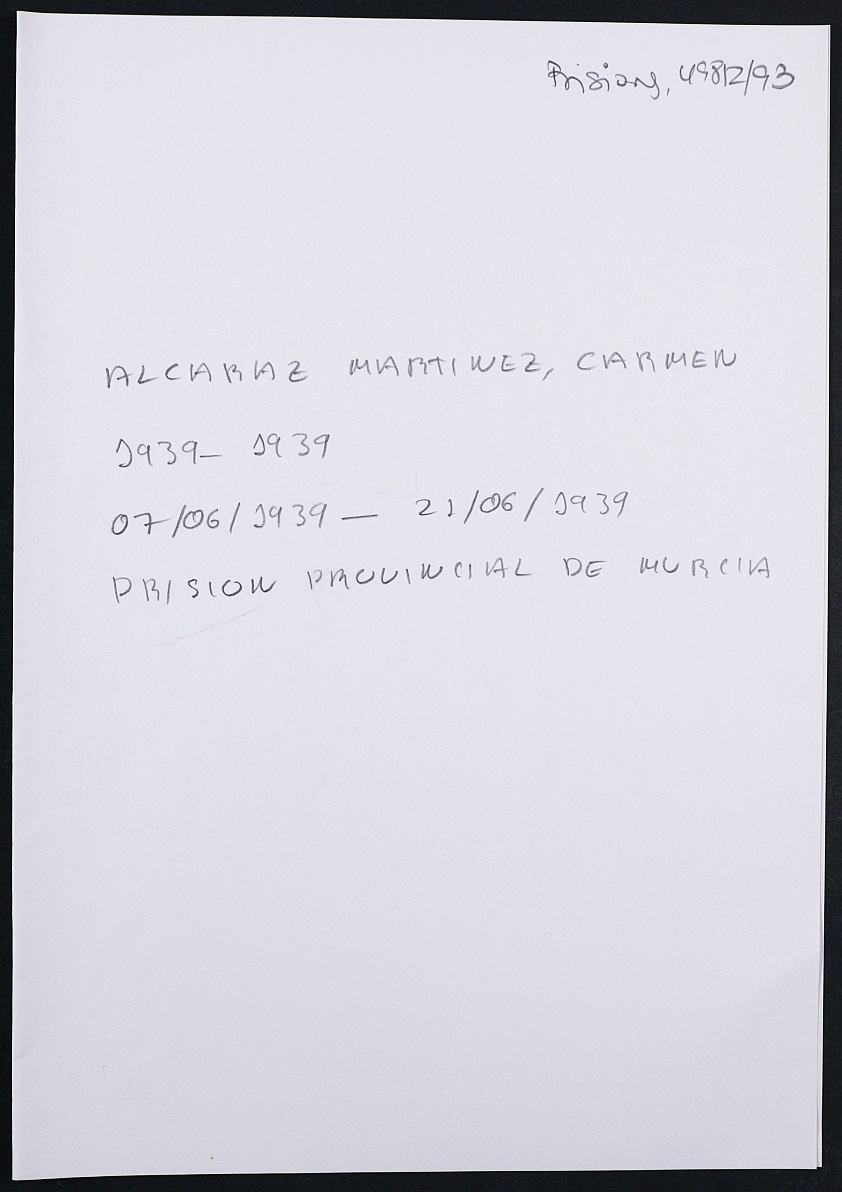 Prisiones, 49812/93
ALCARAZ MARTINEZ, CARMEN
1939- 1939
07/06/1939 - 21/06/1939
PRISION PROVINCIAL DE MURCIA